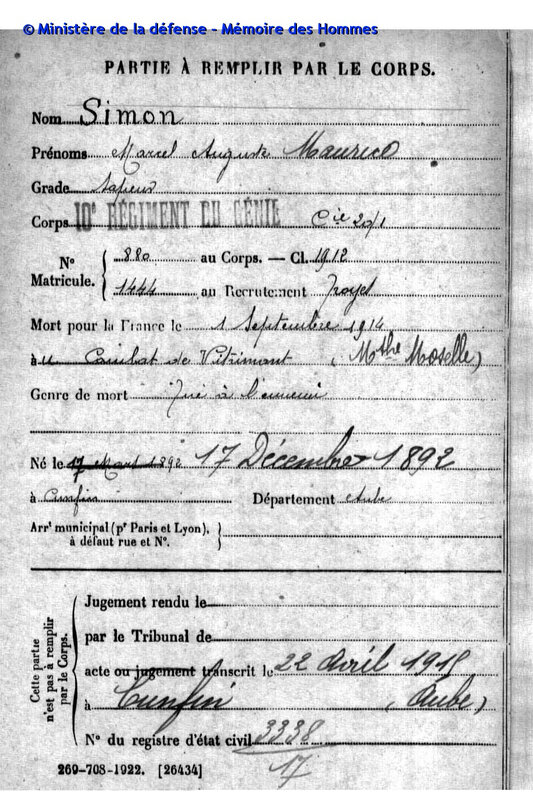 © Ministère de la défense - Mémoire des Hommes
PARTIE À REMPLIR PAR LE CORPS.
Nom Simon
Prénoms Marcel Auguste Maurice
Grade Sapeur
Corps 10e RÉGIMENT DU GÉNIE Cie 20/1
N° Matricule. { 880 au Corps. — Cl. 1912
1444 au Recrutement Troyes
Mort pour la France le 1 Septembre 1914
à u Combat de Vitrimont (Mthe Moselle)
Genre de mort Tué à l'ennemi
Né le 17 Mars 1892 17 Décembre 1892
à Cunfin Département Aube
Arrt municipal (pr Paris et Lyon), à défaut rue et N°. }
Cette partie n'est pas à remplir par le Corps. {
Jugement rendu le
par le Tribunal de
acte ou jugement transcrit le 22 Avril 1915
à Cunfin (Aube)
N° du registre d'état civil 3338
17
269-708-1922. [26434]